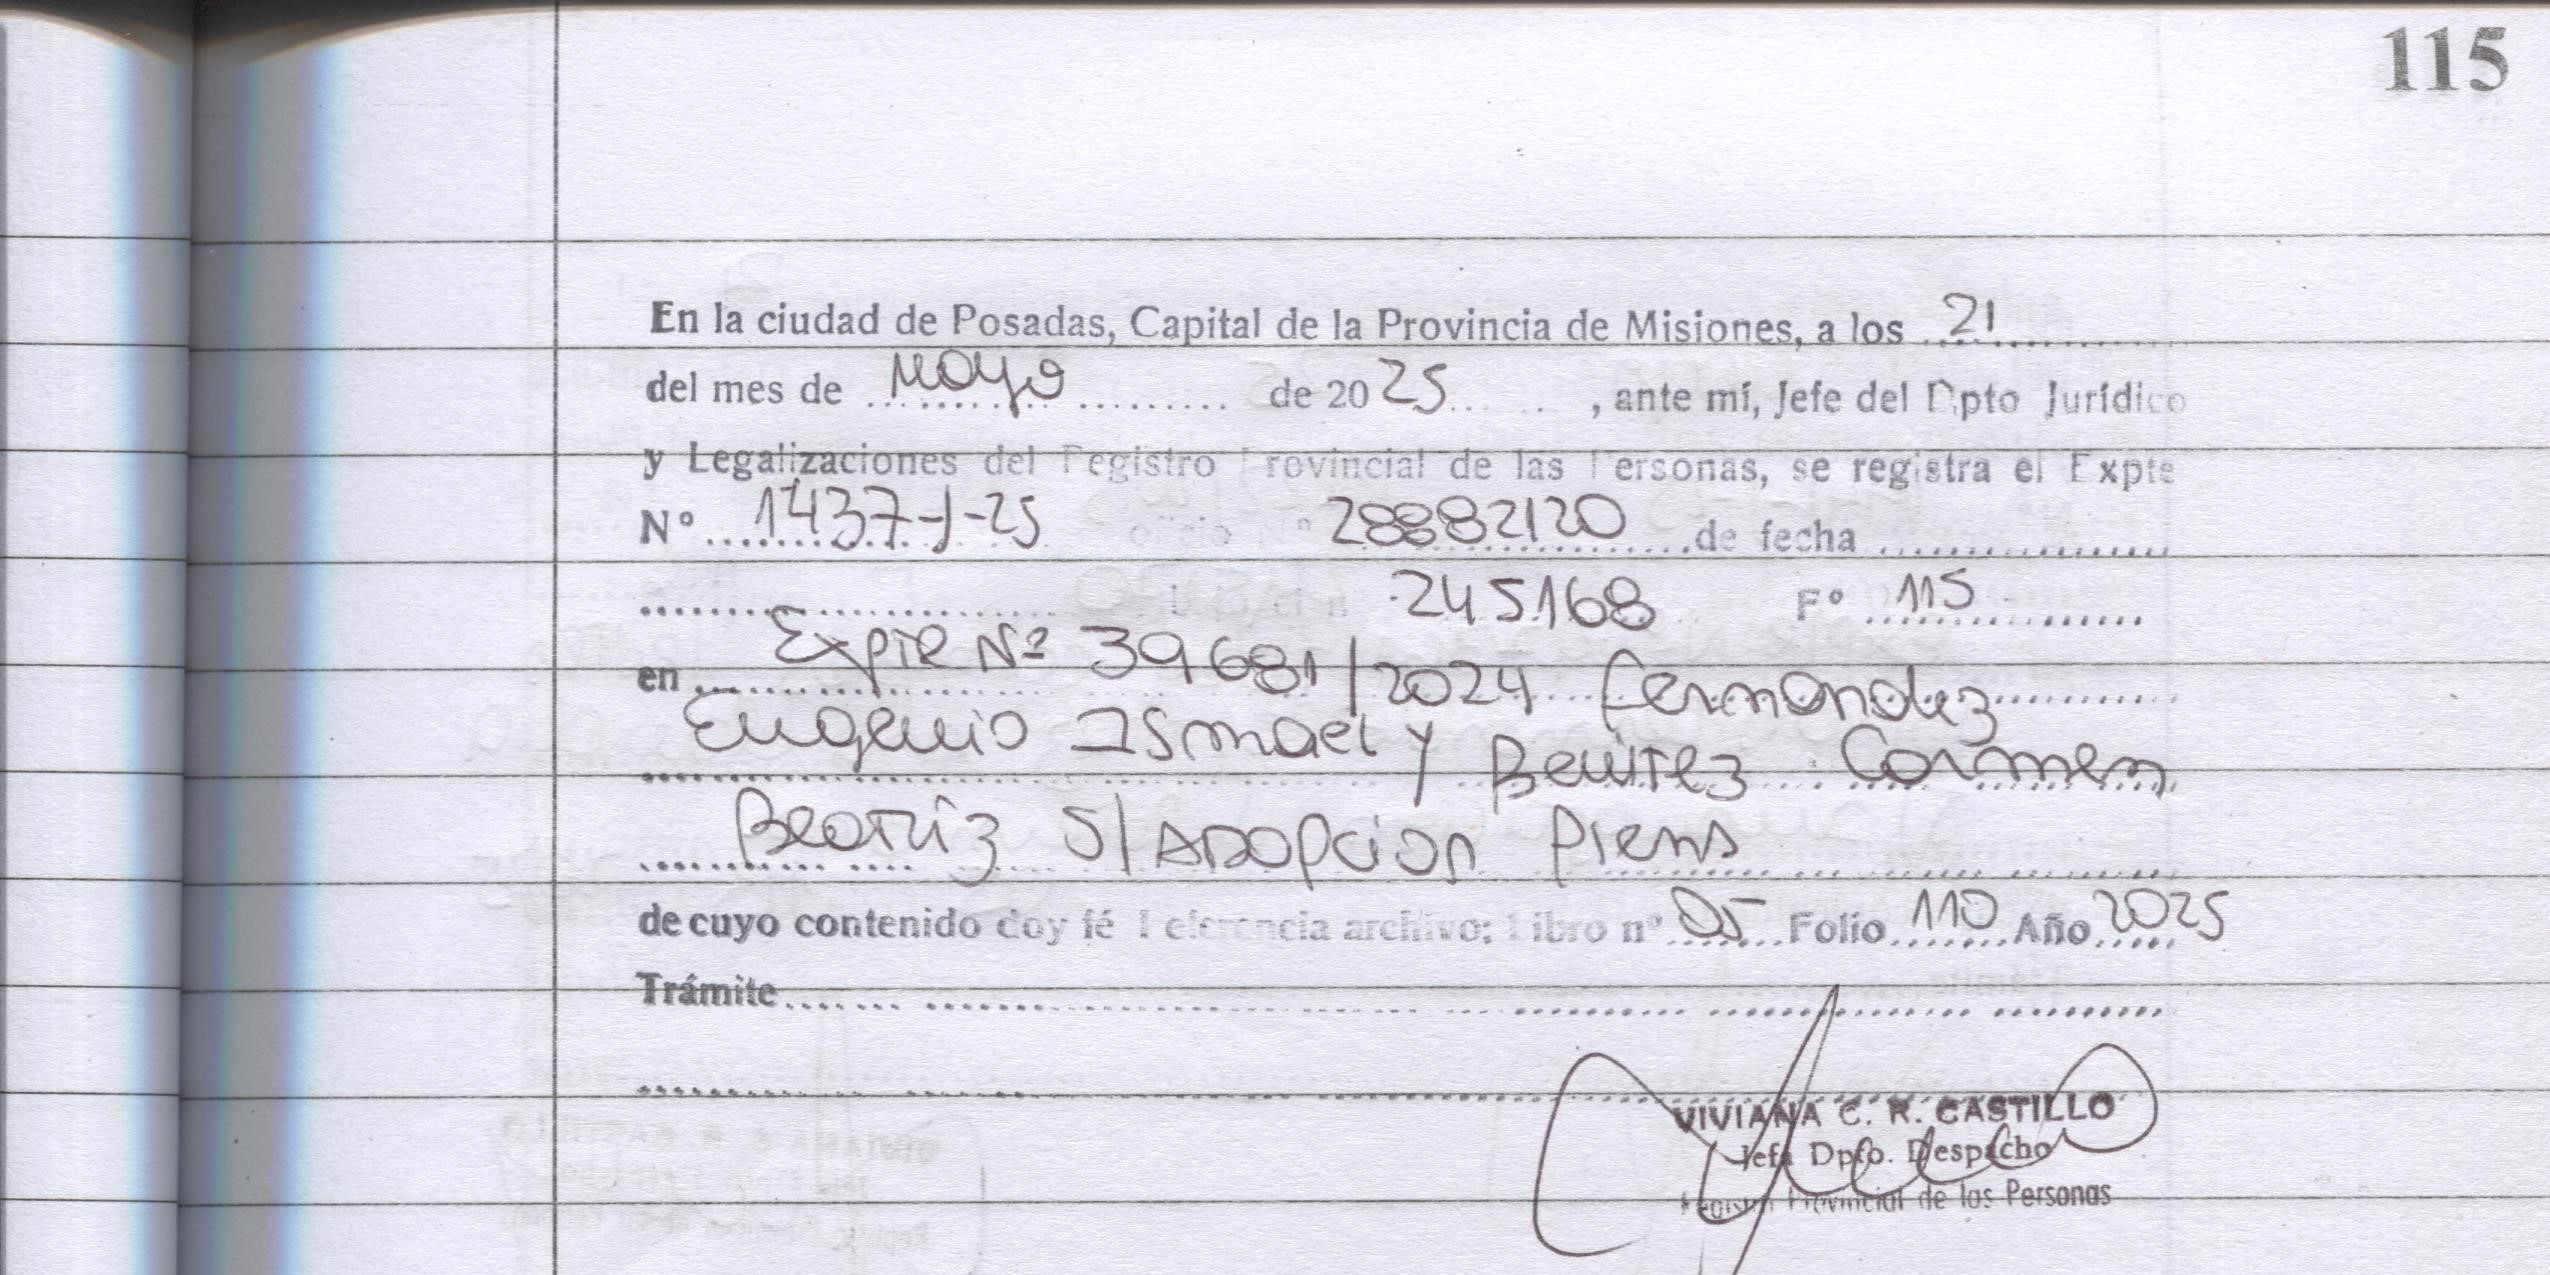 115
En la ciudad de Posadas, Capital de la Provincia de Misiones, a los 21
del mes de Mayo de 2025, ante mí, Jefe del Dpto Jurídico
y Legalizaciones del Registro Provincial de las Personas, se registra el Expte
Nº 1437-J-25 oficio Nº 28882120 de fecha
245168 Fº 115
en Expte Nº 39681/2024 Fernandez
Eugenio Ismael y Benitez Carmen
Beatriz S/ Adopcion Plena
de cuyo contenido doy fé Referencia archivo: Libro nº 05 Folio 110 Año 2025
Trámite
VIVIANA C. R. CASTILLO
Jefa Dpto. Despacho
Registro Provincial de las Personas